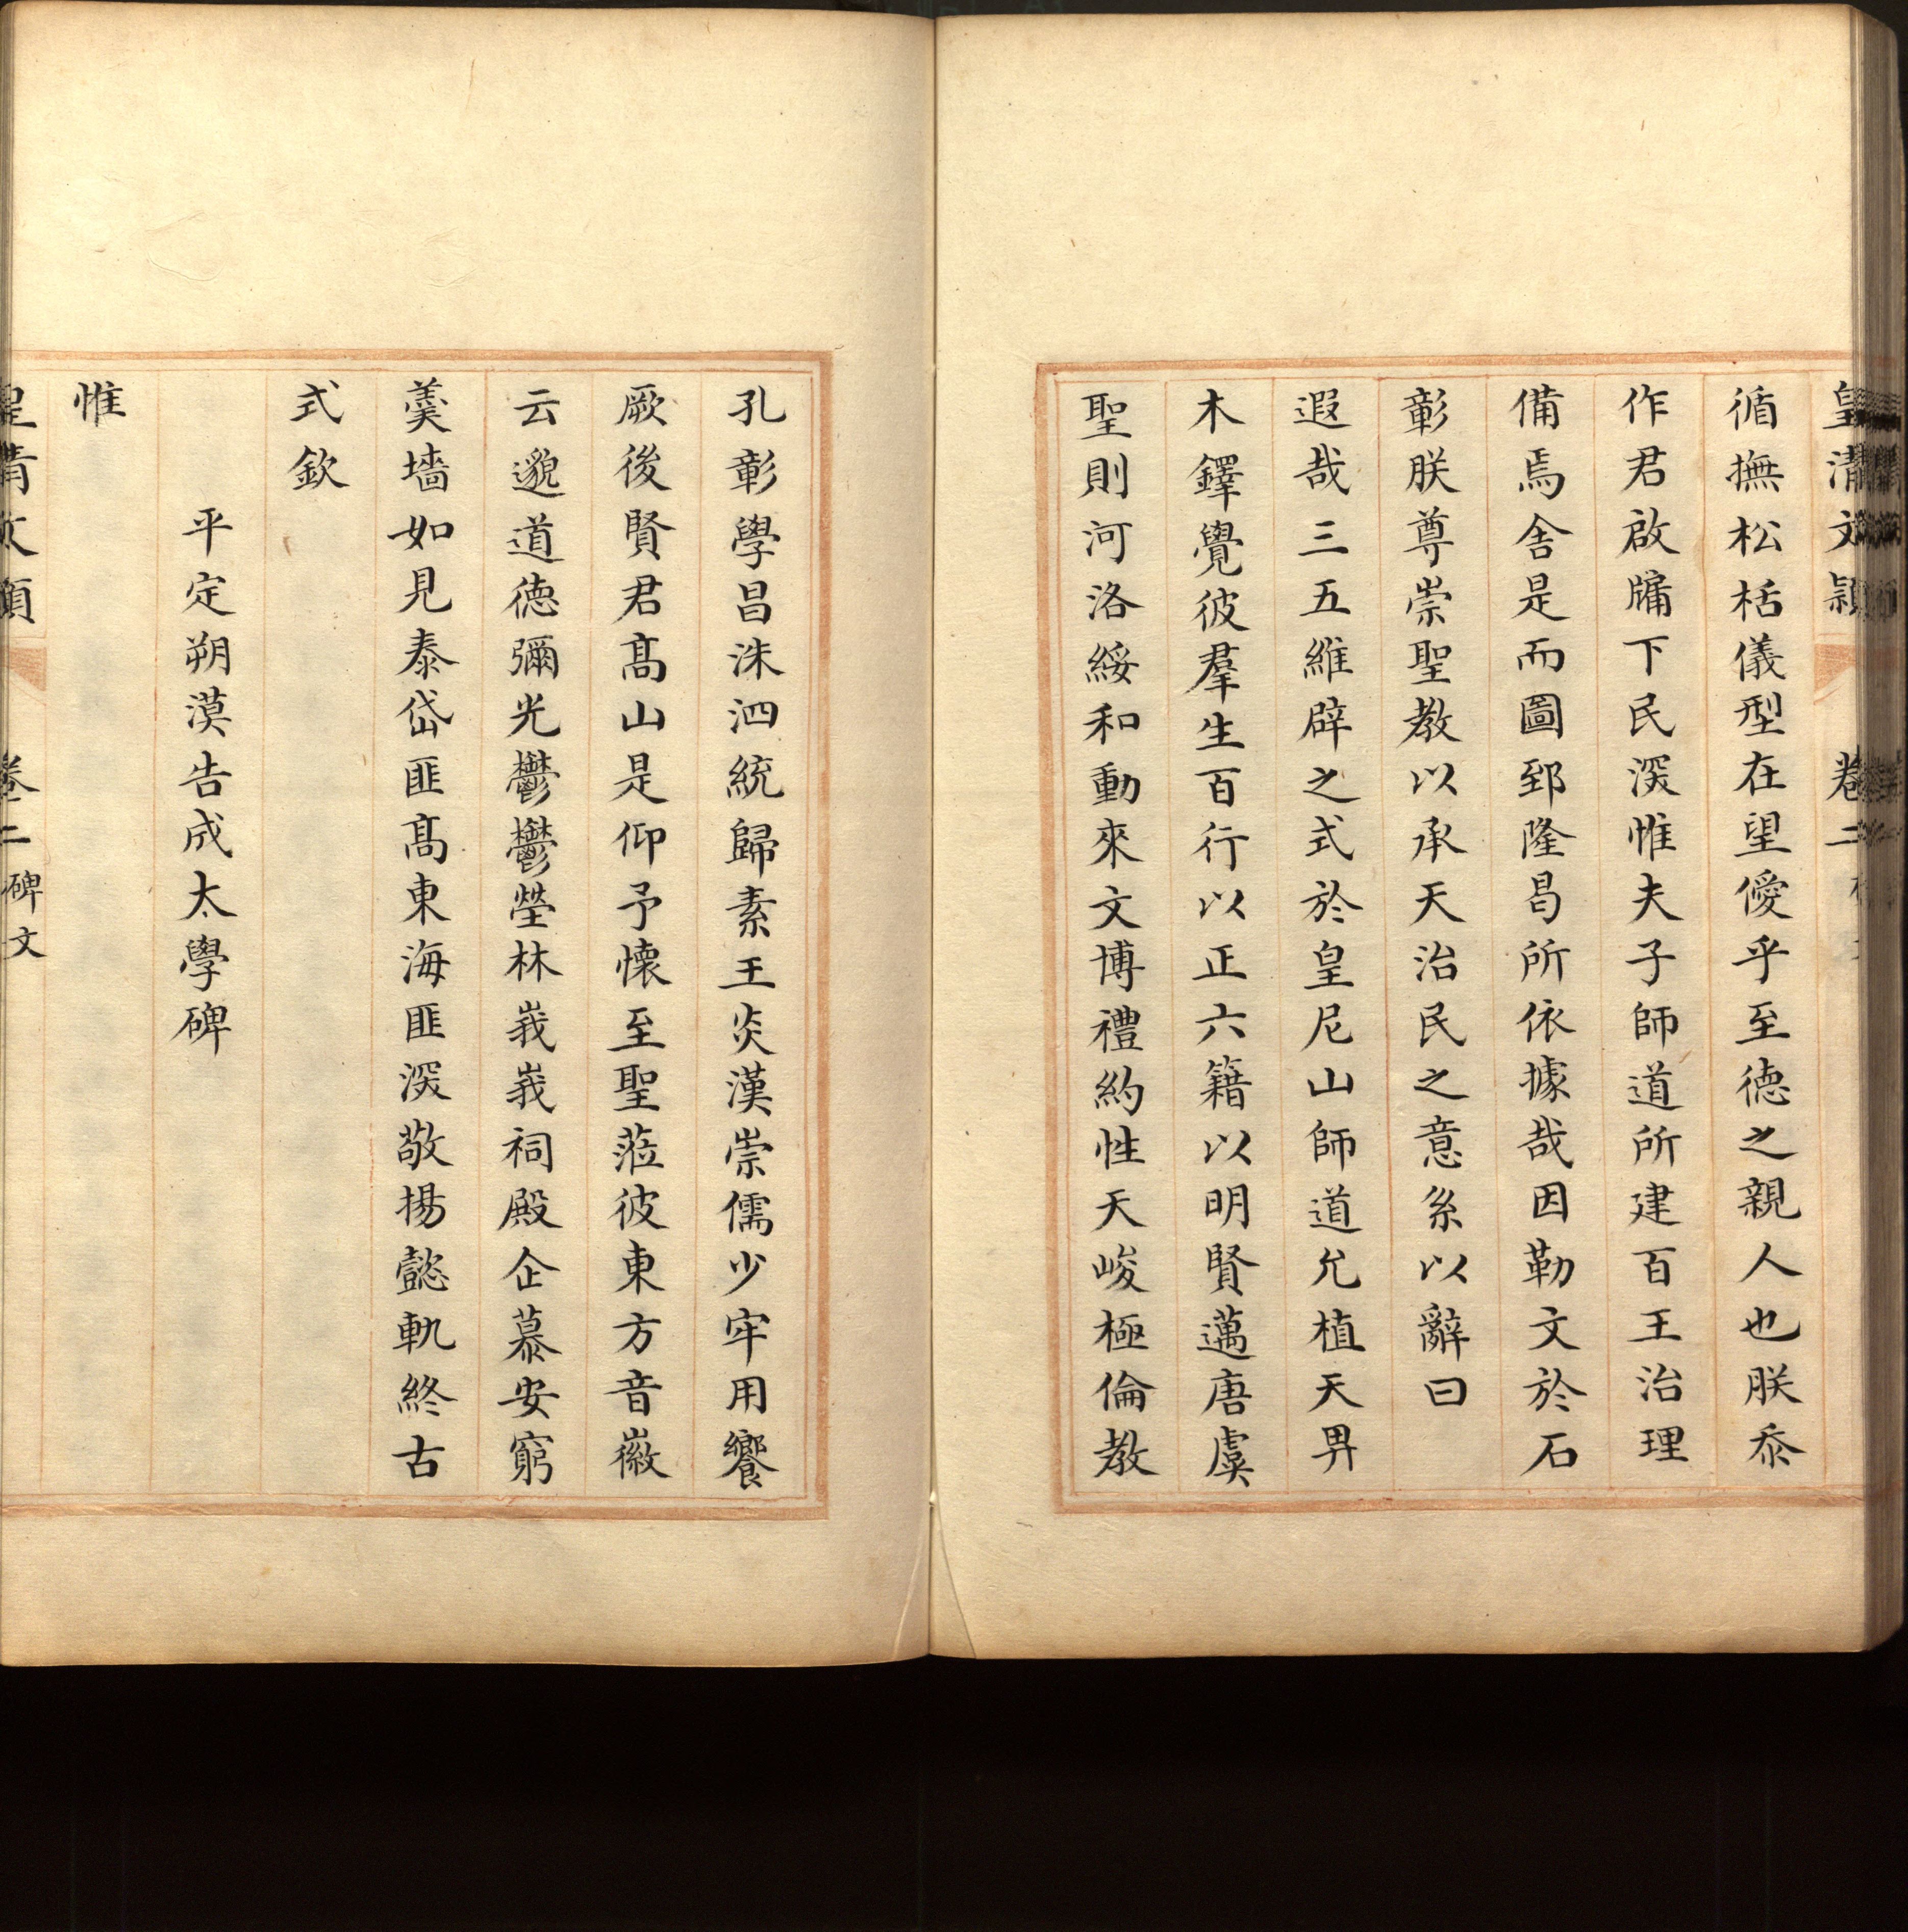 皇清文穎 卷二
循撫松栝儀型在望僾乎至德之親人也朕忝
作君啟牖下民深惟夫子師道所建百王治理
備焉舍是而圖郅隆曷所依據哉因勒文於石
彰朕尊崇聖教以承天治民之意系以辭曰
遐哉三五維辟之式於皇尼山師道允植天畀
木鐸覺彼羣生百行以正六籍以明賢邁唐虞
聖則河洛綏和動來文博禮約性天峻極倫教
孔彰學昌洙泗統歸素王炎漢崇儒少牢用饗
厥後賢君髙山是仰予懷至聖蒞彼東方音徽
云邈道德彌光鬱鬱塋林峩峩祠殿企慕安窮
羹墻如見泰岱匪髙東海匪深敬揚懿軌終古
式欽
平定朔漠告成太學碑
惟
皇清文穎 卷二 碑文